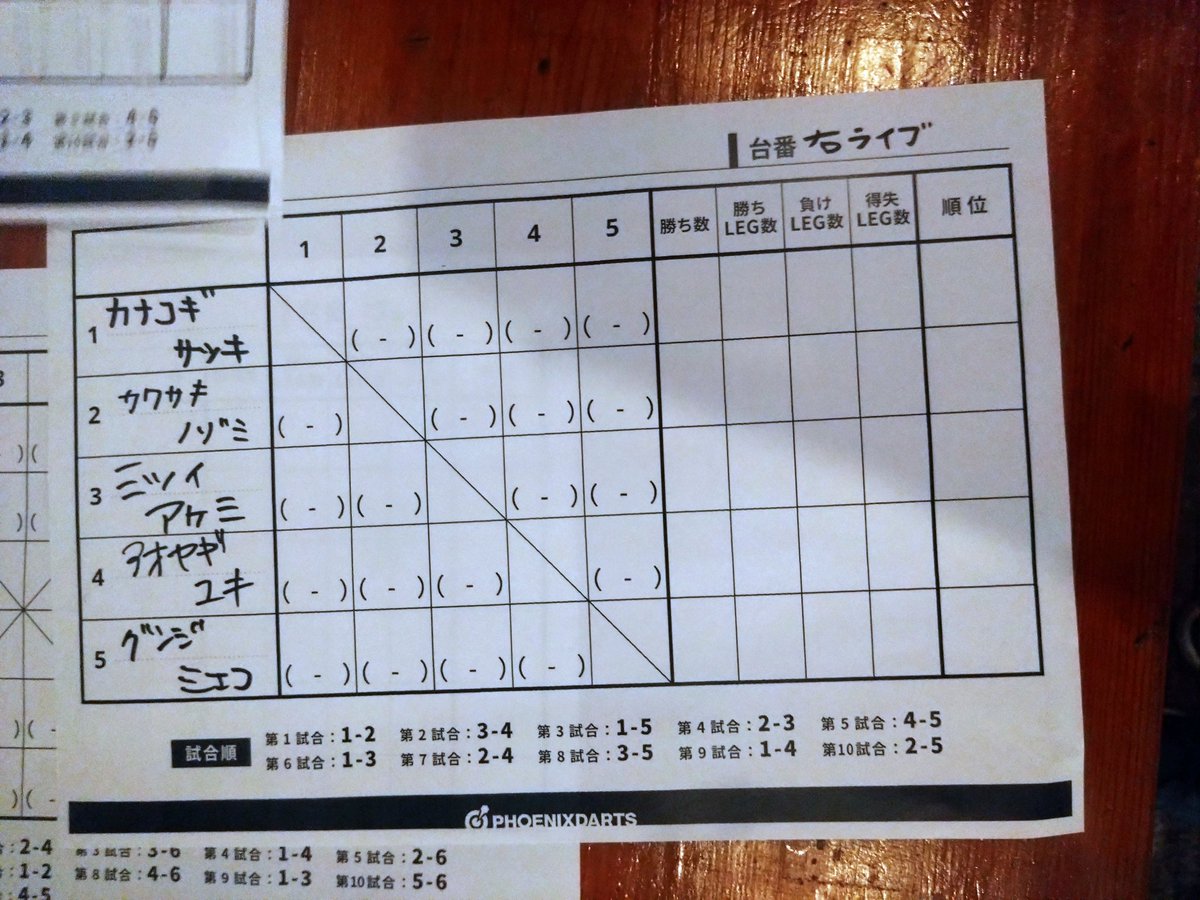 台番 右ライブ
1 2 3 4 5 勝ち数 勝ちLEG数 負けLEG数 得失LEG数 順位
1 カナコギ
サツキ
( - ) ( - ) ( - ) ( - )
2 カワサキ
ノゾミ
( - ) ( - ) ( - ) ( - )
3 ミツイ
アケミ
( - ) ( - ) ( - ) ( - )
4 アオヤギ
ユキ
( - ) ( - ) ( - ) ( - )
5 グンジ
ミエコ
( - ) ( - ) ( - ) ( - )
試合順
第1試合:1-2 第2試合:3-4 第3試合:1-5 第4試合:2-3 第5試合:4-5
第6試合:1-3 第7試合:2-4 第8試合:3-5 第9試合:1-4 第10試合:2-5
PHOENIXDARTS
2-4 3-6 第4試合:1-4 第5試合:2-6
1-2 第8試合:4-6 第9試合:1-3 第10試合:5-6
4-5